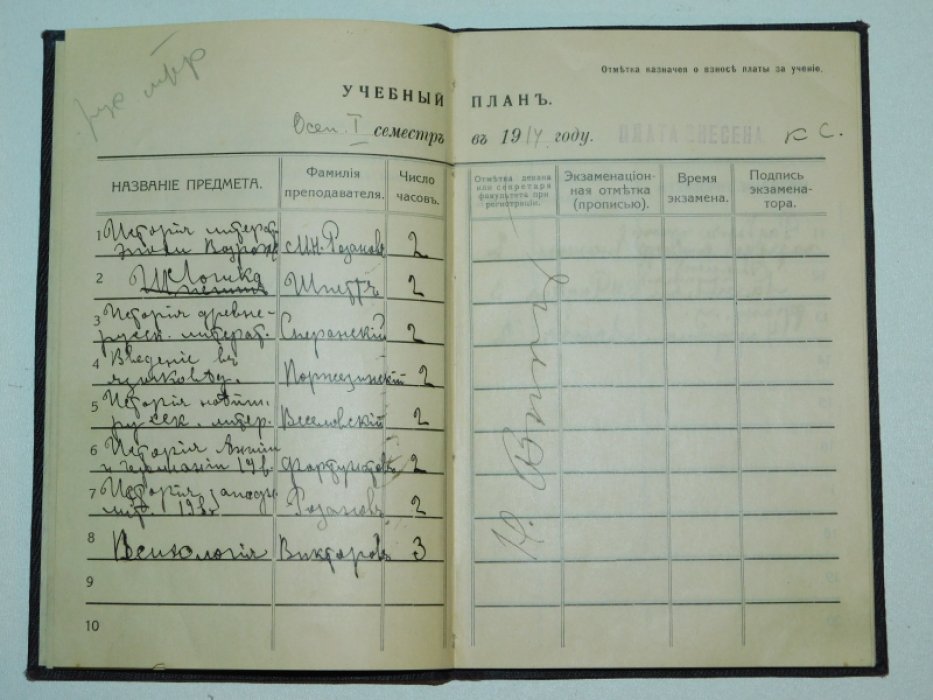 Отмѣтка казначея о взносѣ платы за ученіе.
УЧЕБНЫЙ ПЛАНЪ.
Осен. I семестръ въ 1914 году. ПЛАТА ВНЕСЕНА
НАЗВАНІЕ ПРЕДМЕТА. Фамилія преподавателя. Число часовъ. Отмѣтка декана или секретаря факультета при регистраціи. Экзаменаціонная отмѣтка (прописью). Время экзамена. Подпись экзаменатора.
1 Исторія литерат.
эпохи Возрожд М.Н. Розановъ 2
2 Логика Шпеттъ 2
3 Исторія древне-
русск. литерат. Сперанскій 2
4 Введеніе въ
языковѣд. Поржезинскій 2
5 Исторія новѣйш.
русск. литер. Веселовскій 2
6 Исторія Англіи
и Германіи 19 в. Фортунатовъ 2
7 Исторія западн.
лит. 19 в. Розановъ 2
8 Психологія Викторовъ 3
9
10